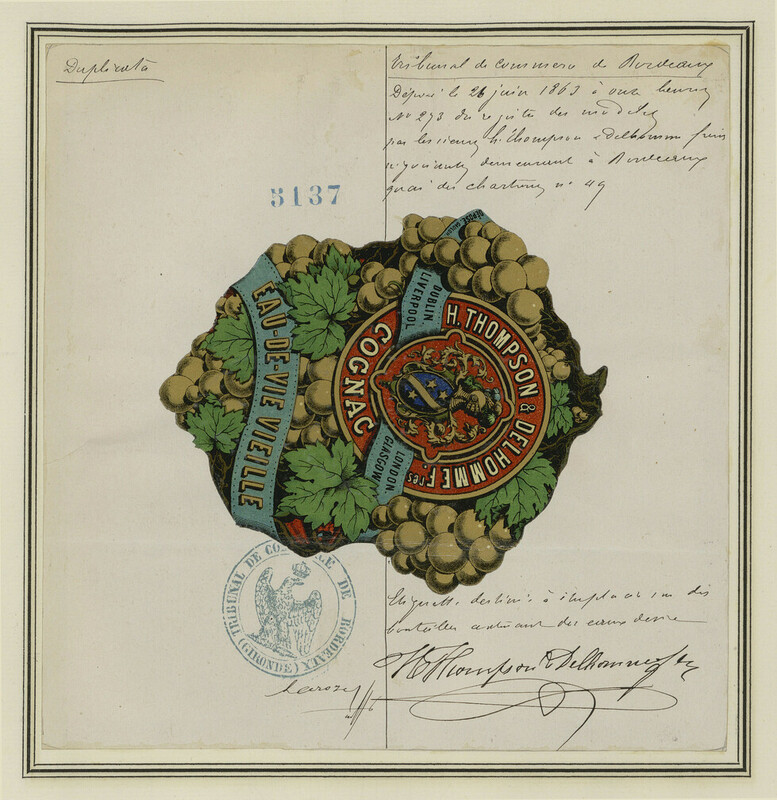 Duplicata
Tribunal de commerce de Bordeaux
Déposé le 26 juin 1863 à onze heures
No 273 du registre des modèles
par les sieurs H. Thompson & Delhomme frères
négociants demeurant à Bordeaux
quai des chartrons no 49
5137
DÉPOSÉ
DUBLIN
LIVERPOOL
H. THOMPSON & DELHOMME Fres
COGNAC
LONDON
GLASGOW
EAU-DE-VIE VIEILLE
TRIBUNAL DE CO LE DE BORDEAUX
(GIRONDE)
Etiquette destinée à être sur des
bouteilles contenant des eaux de vie
H Thompson & Delhomme fres